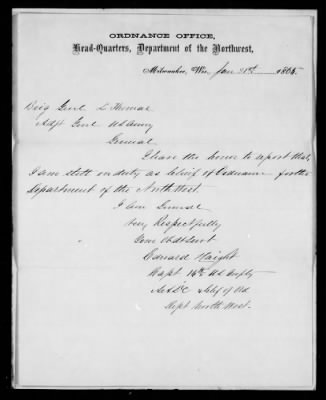 ORDNANCE OFFICE,
Head-Quarters, Department of the Northwest,
Milwaukee, Wis. Jan 31st 1865.
Brig Genl L Thomas
Adjt Genl US Army
General
I have the honor to report that
I am still on duty as Chief of Ordnance for the
Department of the North West.
I am General
Very Respectfully
Your Obdt Servt
Edward Haight
Capt 16th US Infty
& Chief of Ord
Dept North West.